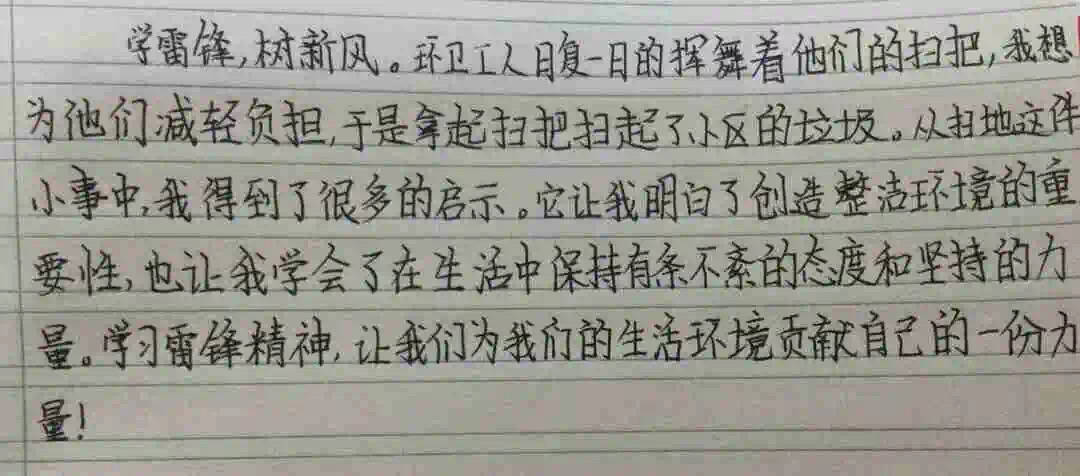 学雷锋,树新风。环卫工人日复一日的挥舞着他们的扫把,我想
为他们减轻负担,于是拿起扫把扫起了小区的垃圾。从扫地这件
小事中,我得到了很多的启示。它让我明白了创造整洁环境的重
要性,也让我学会了在生活中保持有条不紊的态度和坚持的力
量。学习雷锋精神,让我们为我们的生活环境贡献自己的一份力
量!